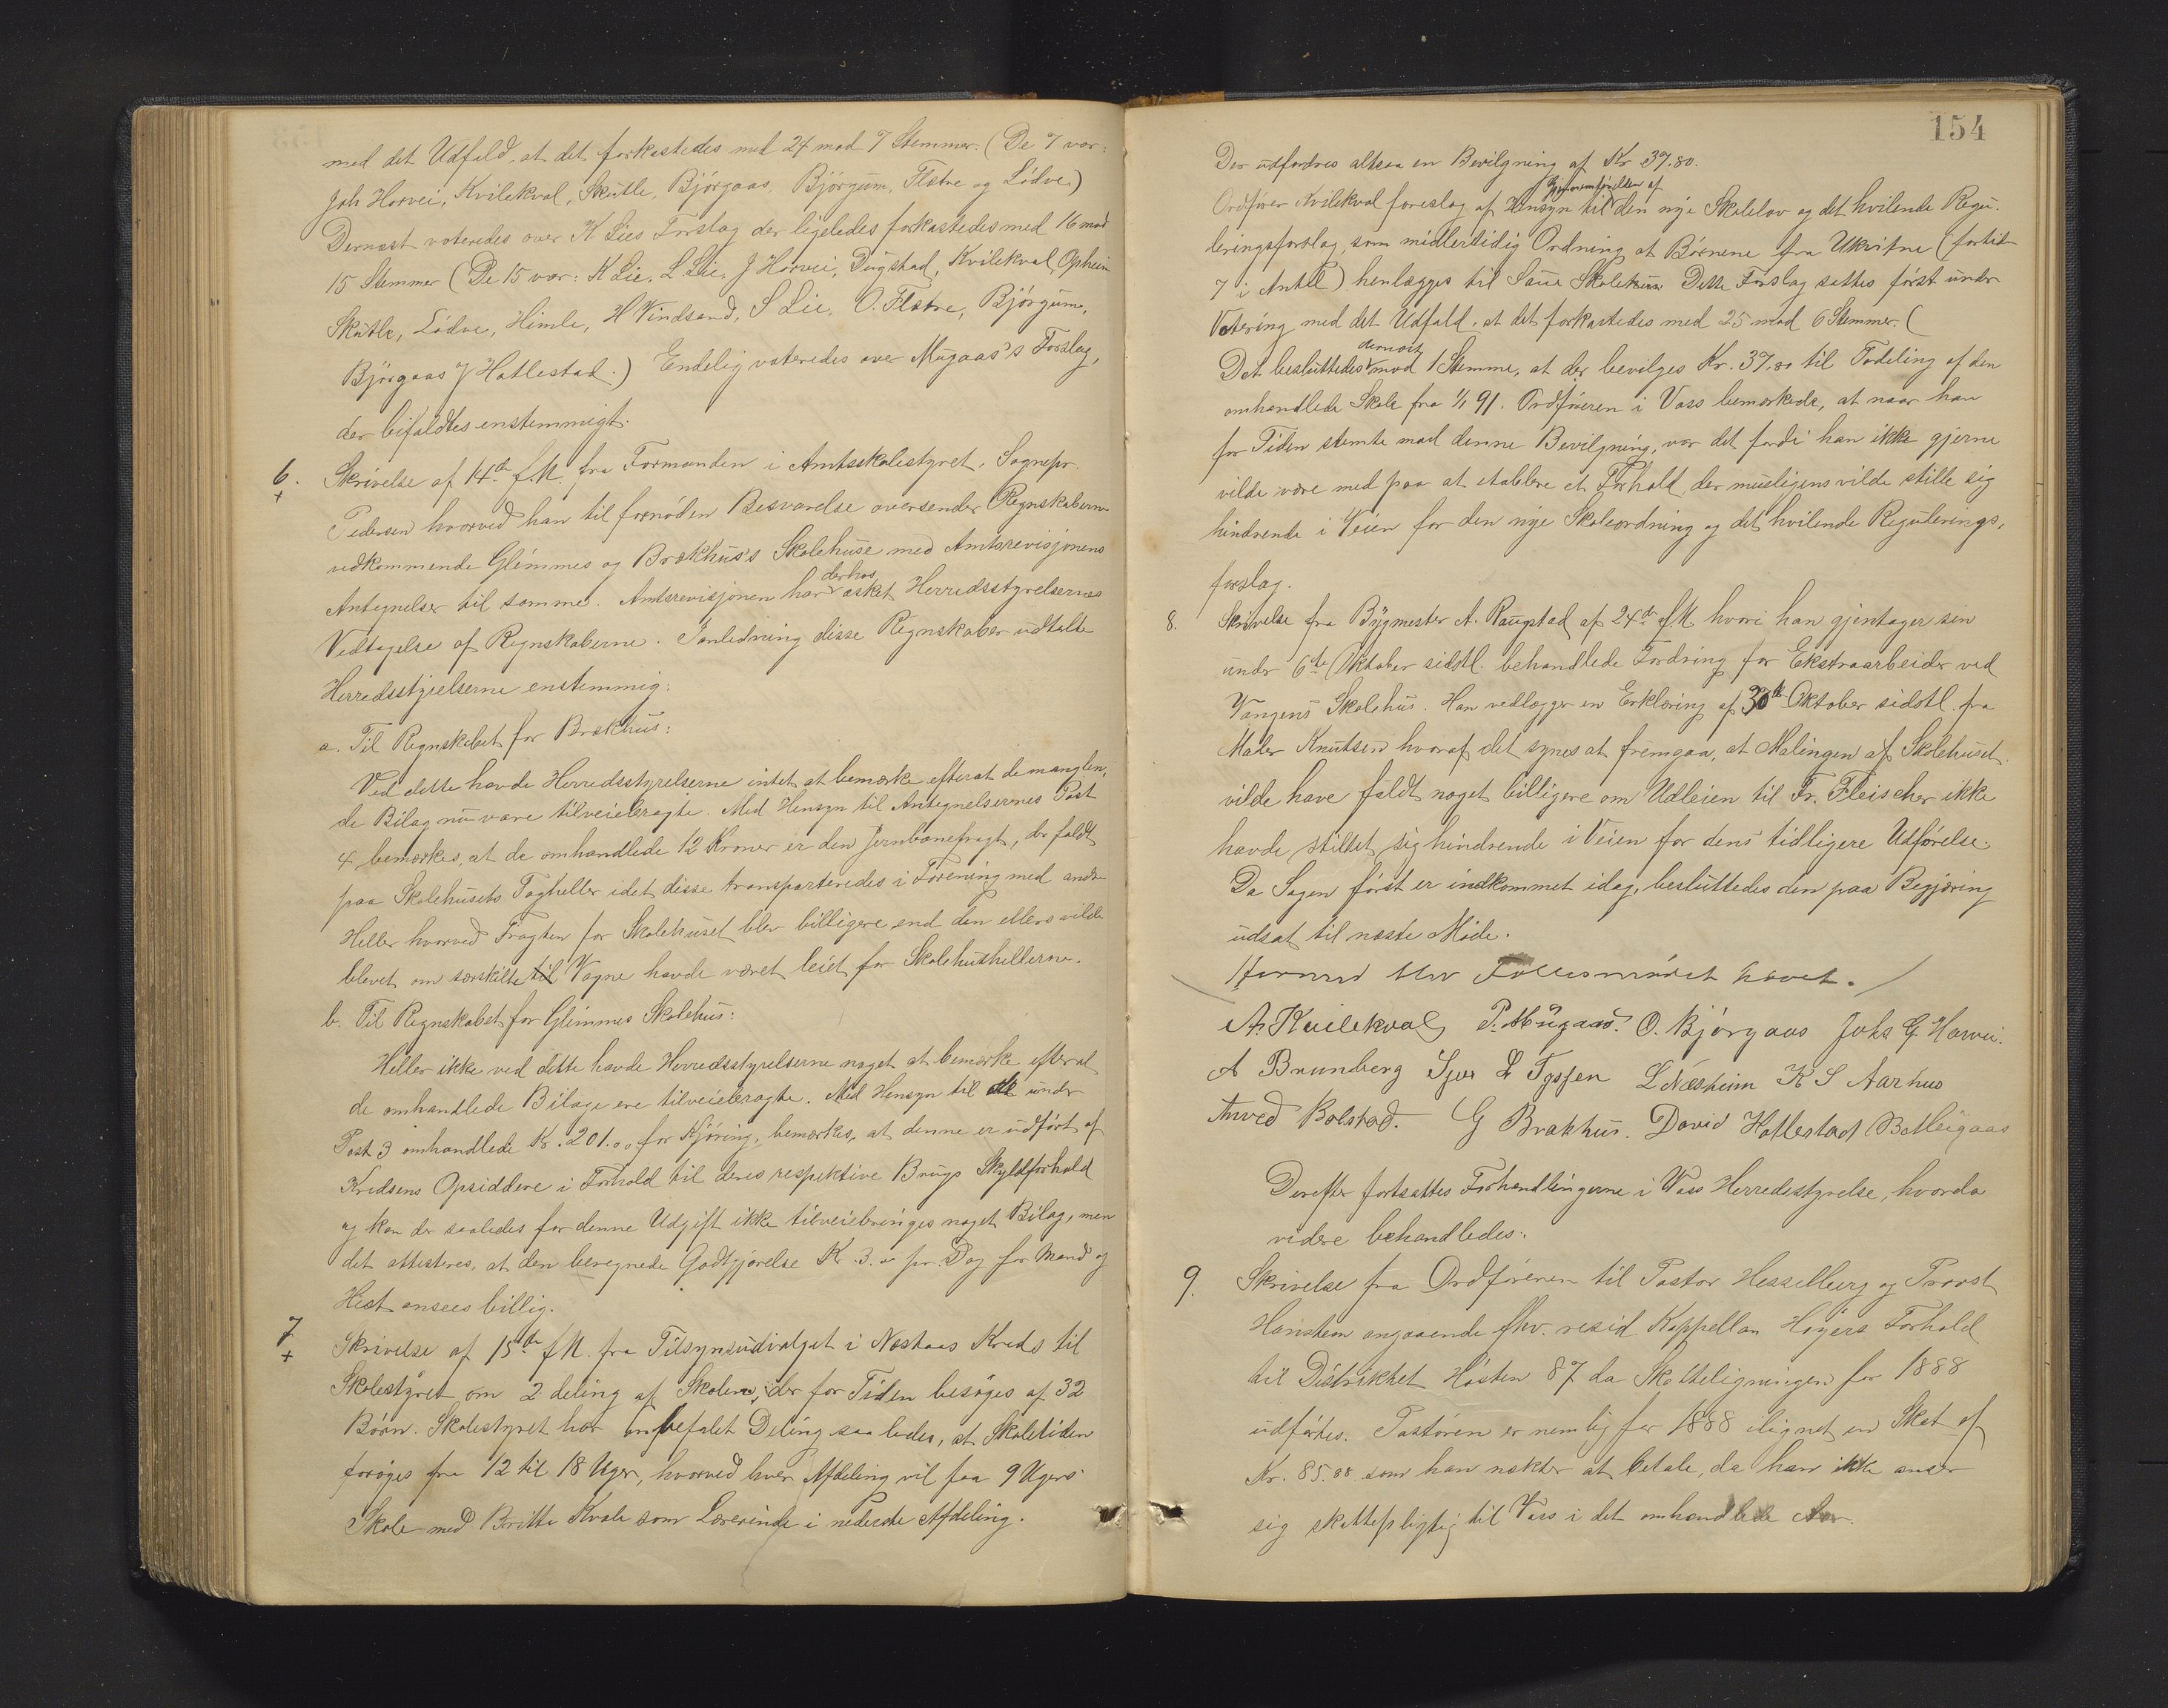 med det Udfald, at det forkastedes med 24 mod 7 Stemmer. (De 7 var:
Joh Horvei, Kvilekval, Skutle, Bjørgaas, Bjørgum, Flatre og Lødve.)
Dernæst voteredes over K Lies Forslag der ligeledes forkastedes med 16 mod
15 Stemmer (De 15 var: K Lie, L Lie, J Horvei, Dugstad, Kvilekval, Opheim
Skutle, Lødve, Himle, H Vindsand, S Lie, O. Flatre, Bjørgum,
Bjørgaas J Hatlestad.) Endelig voteredes over Mugaas's Forslag,
der bifaldtes enstemmigt.
6. Skrivelse af 14de f.M. fra Formanden i Amtsskolestyret, Sognepr.
+
Pedersen hvorved han til fornøden Besvarelse oversender Regnskaberne
vedkommende Glimmes og Brækhus's Skolehuse med Amtsrevisjonens
Antegnelser til samme. Amtsrevisjonen har derhos æsket Herredsstyrelsernes
Vedtagelse af Regnskaberne. I anledning disse Regnskaber udtalte
Herredsstyrelserne enstemmig:
a. Til Regnskabet for Brækhus:
Ved dette havde Herredsstyrelserne intet at bemærke efterat de manglen,
de Bilag nu vare tilveiebragte. Med Hensyn til Antegnelsernes Post
4 bemærkes, at de omhandlede 12 Kroner er den Jernbanefragt, der faldt
paa Skolehusets Tagheller idet disse transporteredes i Forening med andre
Heller hvorved Fragten for Skolehuset blev billigere end den ellers vilde
blevet om særskilte til Vogne havde været leiet for Skolehushellerne.
b. Til Regnskabet for Glimmes Skolehus:
Heller ikke ved dette havde Herredsstyrelserne noget at bemærke efterat
de omhandlede Bilage ere tilveiebragte. Med Hensyn til de under
Post 3 omhandlede Kr. 201.00 for Kjøring, bemærkes, at denne er udført af
Kredsens Opsiddere i Forhold til deres respektive Brugs Skyldforhold
og kan der saaledes for denne Udgift ikke tilveiebringes noget Bilag, men
det attesteres, at den beregnede Godtgjørelse Kr. 3.00 pr. Dag for Mand og
Hest ansees billig.
7 Skrivelse af 15de f.M. fra Tilsynsudvalget i Næstaas Kreds til
+
Skolestyret om 2 deling af Skolen, der for Tiden besøges af 32
Børn. Skolestyret har anbefalet Deling saaledes, at Skoletiden
forøges fra 12 til 18 Uger, hvorved hver Afdeling vil faa 9 Ugers
Skole med Britta Kvale som Lærerinde i nederste Afdeling.
154
Der udfordres altsaa en Bevilgning af Kr 37.80.
Gjennemførelsen af
Ordfører Kvilekval foreslog af Hensyn til den nye Skolelov og det hvilende Regu-
leringsforslag, som midlertidig Ordning at Børnene fra Ukvitne (fortiden
7 i Antal) henlægges til Saue Skolehus. Dette Forslag sattes først under
Votering med det Udfald, at det forkastedes med 25 mod 6 Stemmer. (
Det besluttedes dernæst mod 1 Stemme, at der bevilges Kr. 37.80 til Todeling af den
omhandlede Skole fra 1/1 91. Ordføreren i Voss bemærkede, at naar han
for Tiden stemte mod denne Bevilgning, var det fordi han ikke gjerne
vilde være med paa at etablere et Forhold, der muligens vilde stille sig
hindrende i Veien for den nye Skoleordning og det hvilende Regulerings,
forslag.
8. Skrivelse fra Bygmester A. Raugstad af 24de f.M. hvori han gjentager sin
under 6te Oktober sidstl. behandlede Fordring for Ekstraarbeider ved
Vangens Skolehus. Han vedlægger en Erklæring af 30te Oktober sidstl. fra
Maler Knutsen hvoraf det synes at fremgaa, at Malingen af Skolehuset
vilde have faldt noget billigere om Udleien til Fr. Fleischer ikke
havde stillet sig hindrende i Veien for dens tidligere Udførelse.
Da Sagen først er indkommet idag, besluttedes den paa Begjæring
udsat til næste Møde.
Hermed blev Fællesmødet hævet.
A. Kvilekval P. Mugaas. O. Bjørgaas Johs G. Horvei.
A Brunborg Sjur L Tyssen L Næsheim K S Aarhus
Anved Bolstad. G Brakhus. David Hatlestad
Derefter fortsattes Forhandlingerne i Voss Herredsstyrelse, hvorda
videre behandledes:
9. Skrivelse fra Ordføreren til Pastor Hesselberg og Provst
Hansteen angaaende fhv. resid Kappellan Høyers Forhold
til Distriktet Høsten 87 da Skatteligningen for 1888
udførtes. Pastoren er nemlig for 1888 ilignet en Skat af
Kr. 85.88 som han nekter at betale, da han ikke anser
sig skattepligtig til Voss i det omhandlede Aar.